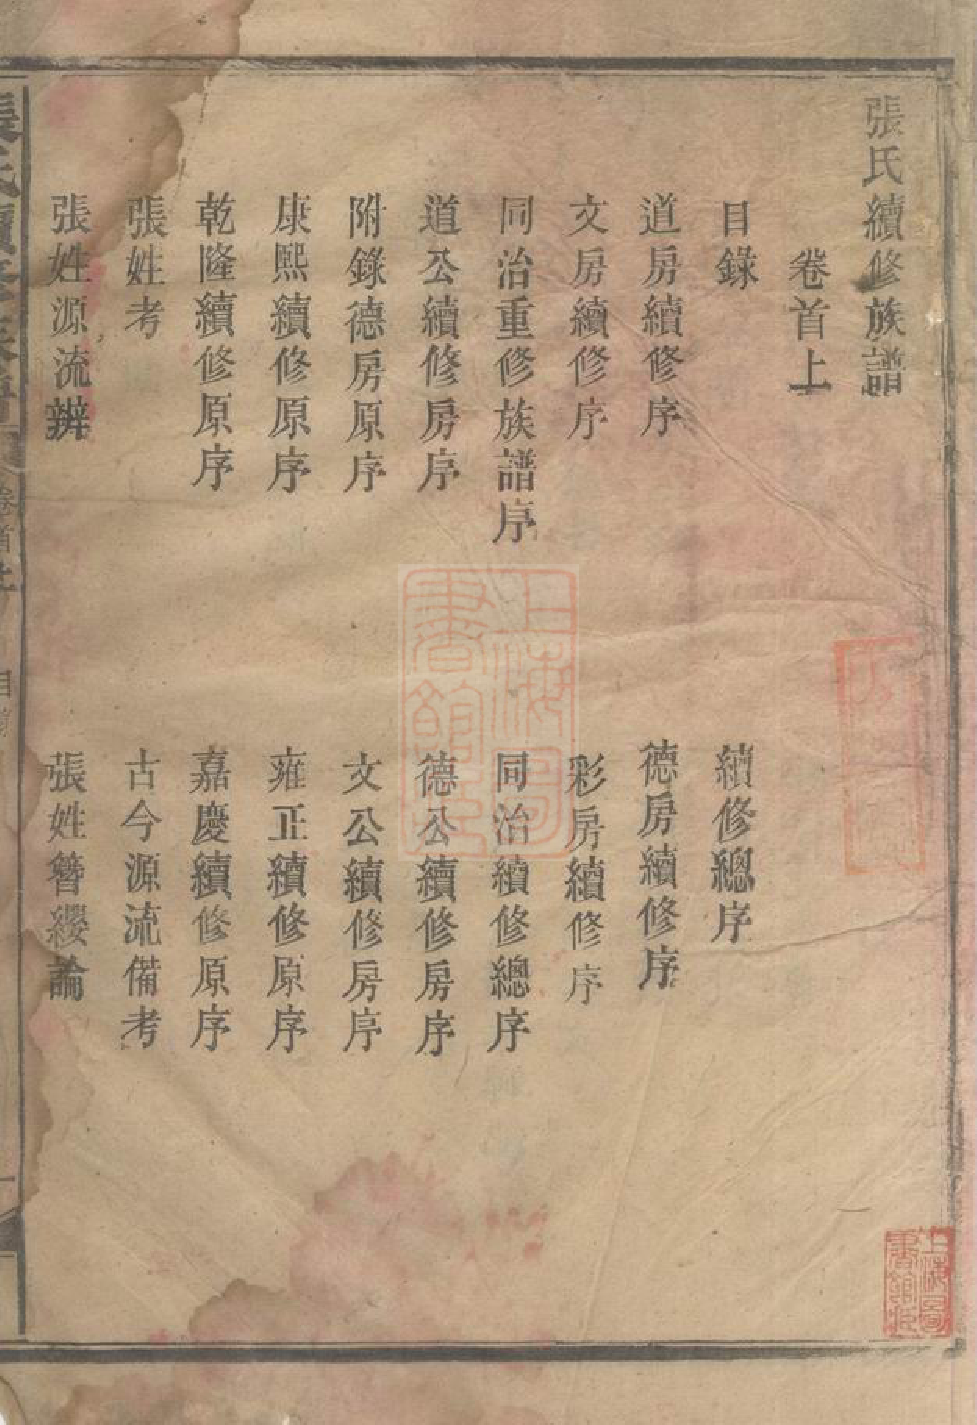 張氏續修族譜
卷首上
目錄
續修總序
道房續修序
德房續修序
文房續修序
彩房續修序
同治重修族譜序
同治續修總序
道公續修房序
德公續修房序
附錄德房原序
文公續修房序
康熙續修原序
雍正續修原序
乾隆續修原序
嘉慶續修原序
張姓考
古今源流備考
張姓源流辨
張姓簪纓論
張氏續修族譜
卷首上
目錄
一
上海圖書館藏
上海圖書館藏